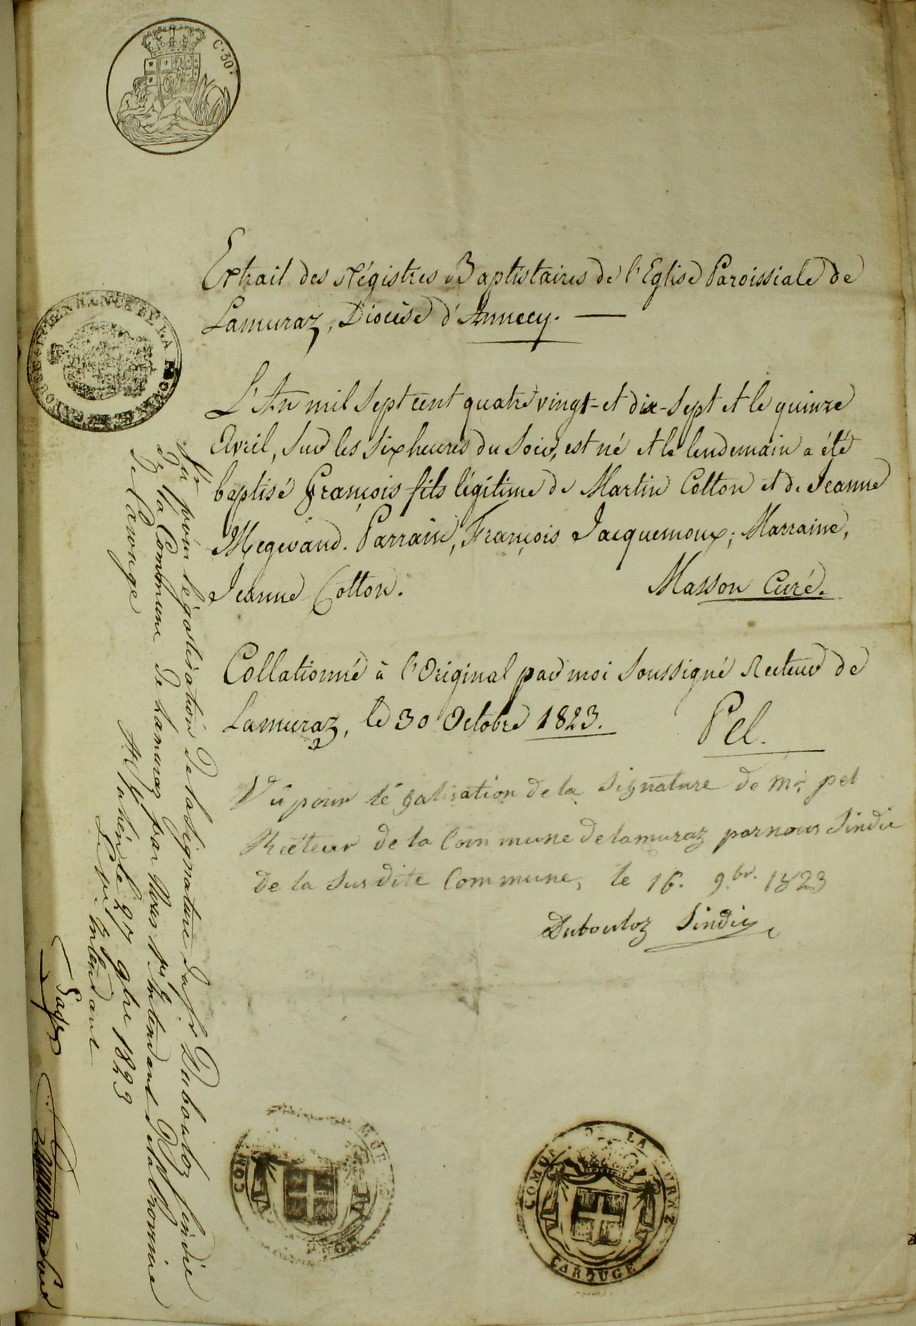 C. 30.
Extrait des Régistres Baptistaires de l'Eglise Paroissiale de
Lamuraz, Diocèse d'Annecy.
L'An mil sept cent quatre vingt-et dix-sept et le quinze
Avril, sur les six heures du soir, est né et le lendemain a été
baptisé François fils légitime de Martin Cotton et de Jeanne
Megevand. Parrain, François Jacquemoux; Marraine,
Jeanne Cotton. Masson Curé.
Collationné à l'Original par moi soussigné Recteur de
Lamuraz, le 30 Octobre 1823. Pel.
Vû pour légalisation de la signature de Mr. pel
Recteur de la Commune de lamuraz par nous Sindic
de la susdite Commune, le 16. 9.br. 1823
Dubouloz Sindic
Vû pour légalisation de la signature du Sr. Dubouloz sindic
de la Commune de Lamuraz par Nous Intendant de la province
de Carouge
St Julien le 27 9bre 1823
Intendant
COMU DE LA MURAZ
CAROUGE